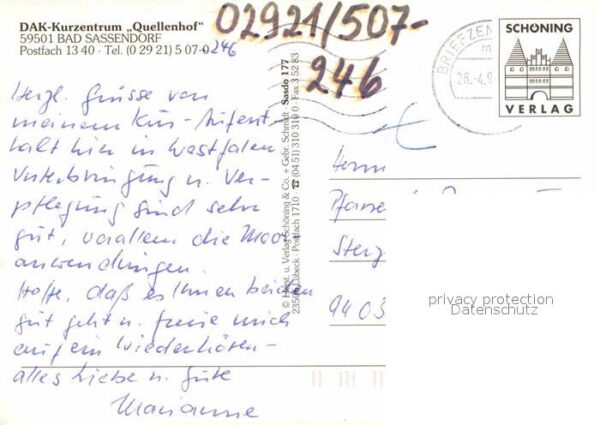 DAK-Kurzentrum „Quellenhof"
59501 BAD SASSENDORF
Postfach 13 40 · Tel. (0 29 21) 5 07-0246
02921/507-
246
Herzl. Grüsse von
meinem Kur-Aufent-
halt hier in Westfalen.
Unterbringung u. Ver-
pflegung sind sehr
gut, vorallem die Moor-
anwendungen.
Hoffe, daß es Ihnen beiden
gut geht u. freue mich
auf ein Wiederhören –
alles Liebe u. Gute
Marianne
© Herst. u. Verlag Schöning & Co. + Gebr. Schmidt · Sasdo 177
23506 Lübeck · Postfach 1710 · ☎ (04 51) 310 310 · Fax 3 52 83
BRIEFZEN
26.-4.9
SCHÖNING
VERLAG
Herrn
Sterz
9403
privacy protection
Datenschutz